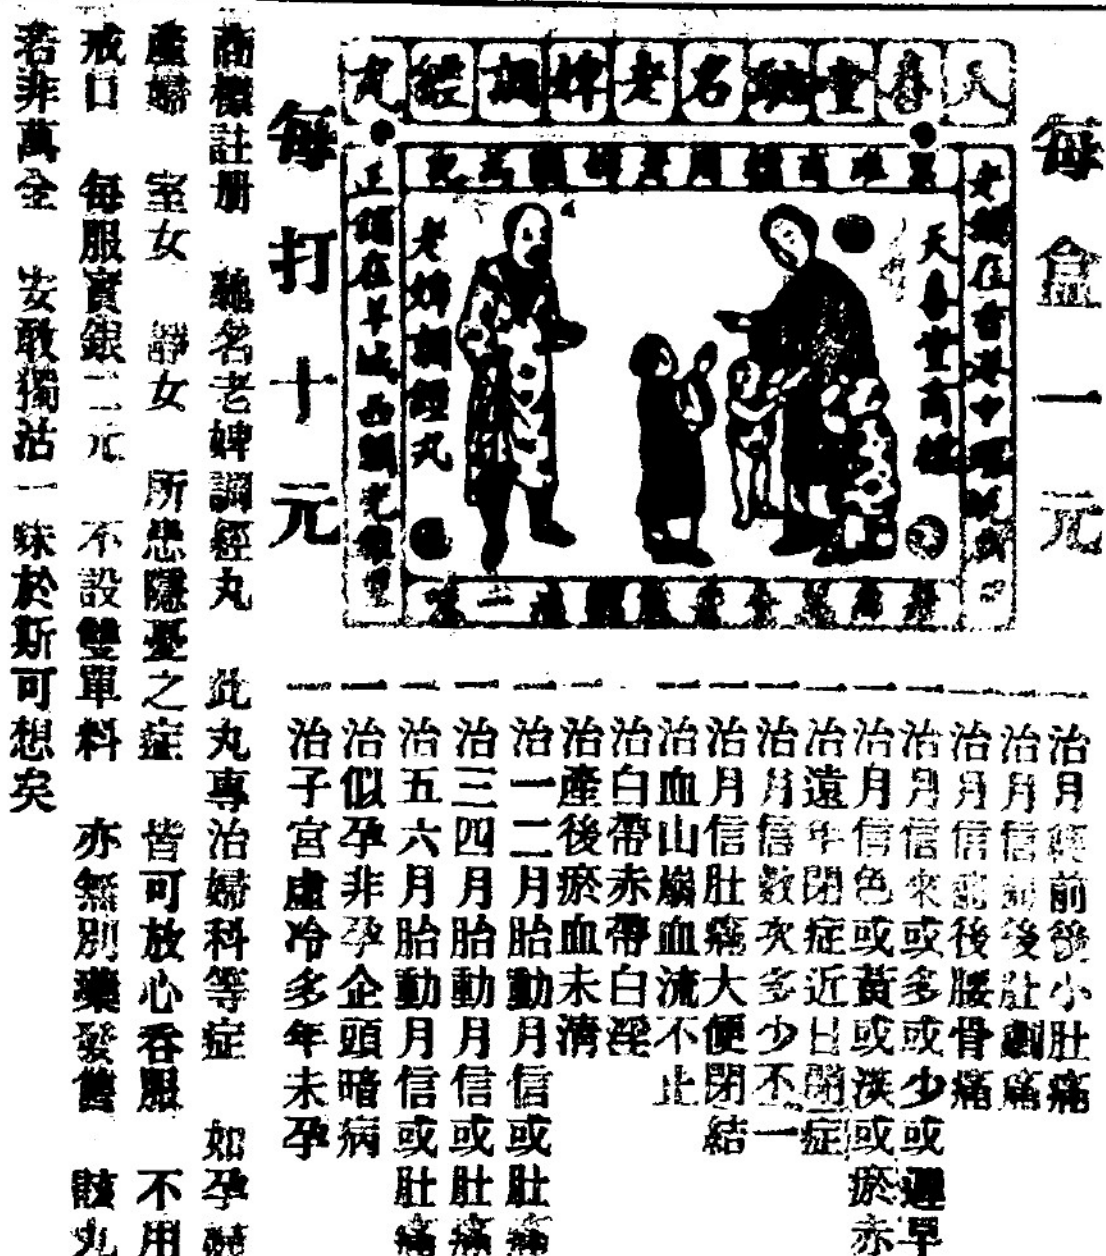 每盒一元
天喜堂馳名老婢調經丸
天喜堂商標
老婢調經丸
每打十元
一治月經前後小肚痛
一治月信前後肚劇痛
一治月信前後腰骨痛
一治月信來或多或少或遲早
一治月信色或黃或淡或瘀赤
一治遠年閉症近日閉症
一治月信數次多少不一
一治月信肚痛大便閉結
一治血山崩血流不止
治白帶赤帶白淫
一治產後瘀血未清
一治一二月胎動月信或肚痛
一治三四月胎動月信或肚痛
一治五六月胎動月信或肚痛
一治似孕非孕企頭暗病
一治子宮虛冷多年未孕
商標註册 馳名老婢調經丸 此丸專治婦科等症 如孕婦
產婦 室女 靜女 所患隱憂之症 皆可放心吞服 不用
戒口 每服實銀二元 不設雙單料 亦無別藥發售 該丸
若非萬全 安敢獨沽一味於斯可想矣